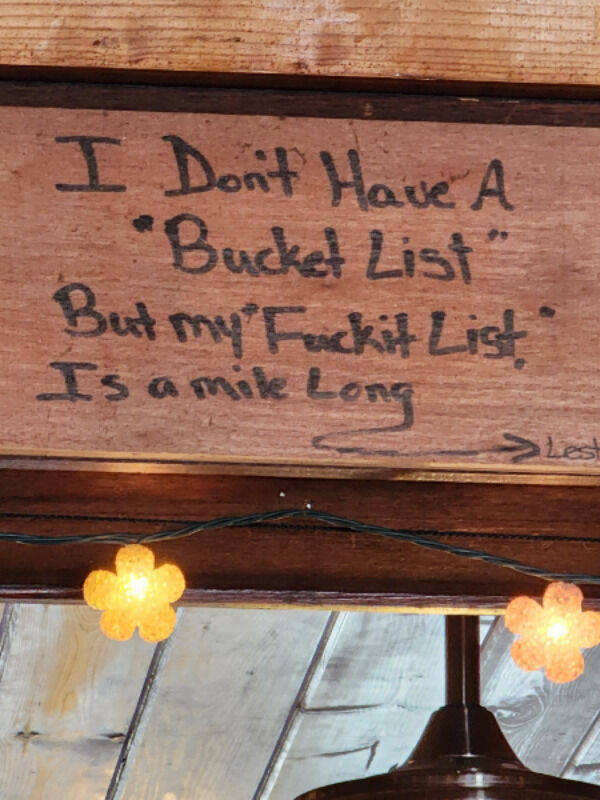 I Don't Have A
"Bucket List"
But my "Fuckit List."
Is a mile Long